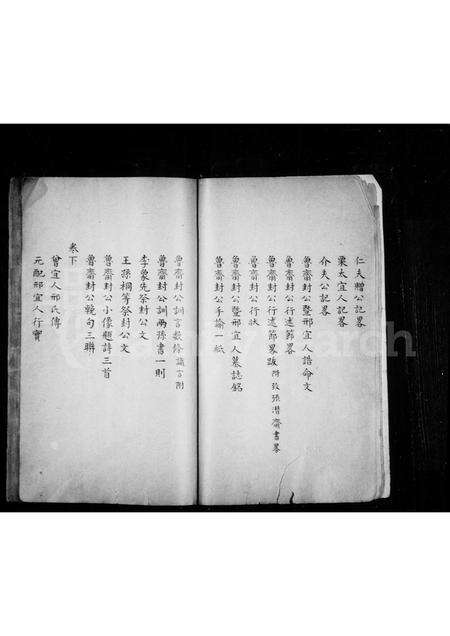 仁夫贈公記畧
栗太宜人記畧
介夫公記畧
魯齋封公暨邢宜人誥命文
魯齋封公行述節畧
魯齋封公行述節畧跋 附致張潛齋書畧
魯齋封公行狀
魯齋封公暨邢宜人墓誌銘
魯齋封公手諭一紙
魯齋封公訓言數條 識言附
魯齋封公訓兩孫書一則
李象先祭封公文
王孫桐等祭封公文
魯齋封公小像題詩三首
魯齋封公輓句三聯
卷下
曾宜人邢氏傳
元配邢宜人行實